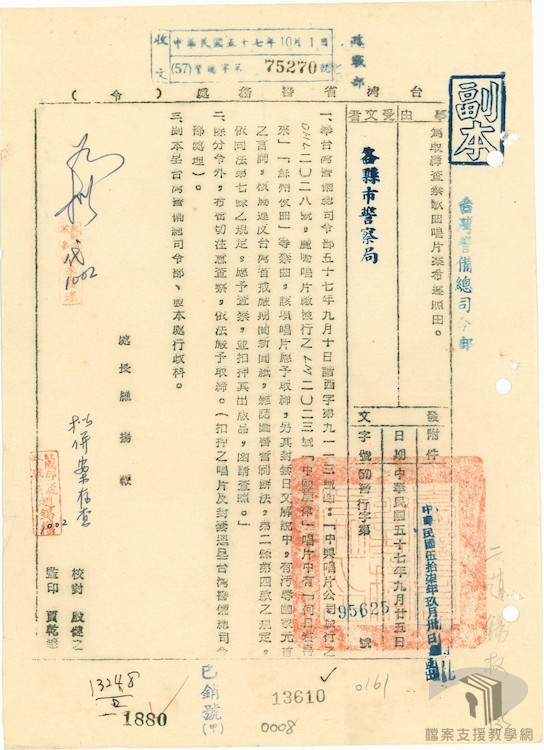 收文 中華民國五十七年10月1日
(57)警總字第 75270號
政戰部
台灣省警務處（令）
副本
台灣警備總司令部
受文者
各縣市警察局
事由
為取締查禁歌曲唱片案希遵照由。
發文
附件
日期 中華民國五十七年九月廿五日
字號 警行字第 95625 號
中華民國伍拾柒年玖月卅日
一、奉台灣警備總司令部五十七年九月十日
「中興唱片公司發行之
二〇二八號，麗鳴唱片廠發行之
二〇二三號「中國旋律」唱片中有「何日君再
來」「蘇州夜曲」等禁曲，該項唱片應予取締，另其封套日文解說中，有污辱國家元首
之言詞，核屬違反台灣省戒嚴期間新聞紙、雜誌圖書管制辦法，第二條第四款之規定，
依同法第七條之規定，應予查禁，並扣押其出版品，函請查照。」
二、除分令外，希密切注意查察，依法嚴予取締。（扣押之唱片及封套逕呈台灣警備總司令
部處理）。
三、副本呈台灣警備總司令部、發本處行政科。
處長羅揚鞭
校對
監印
代
1002
擬併案存查
1002
13248
1880
已銷號
13610
0008
0161
檔案支援教學網